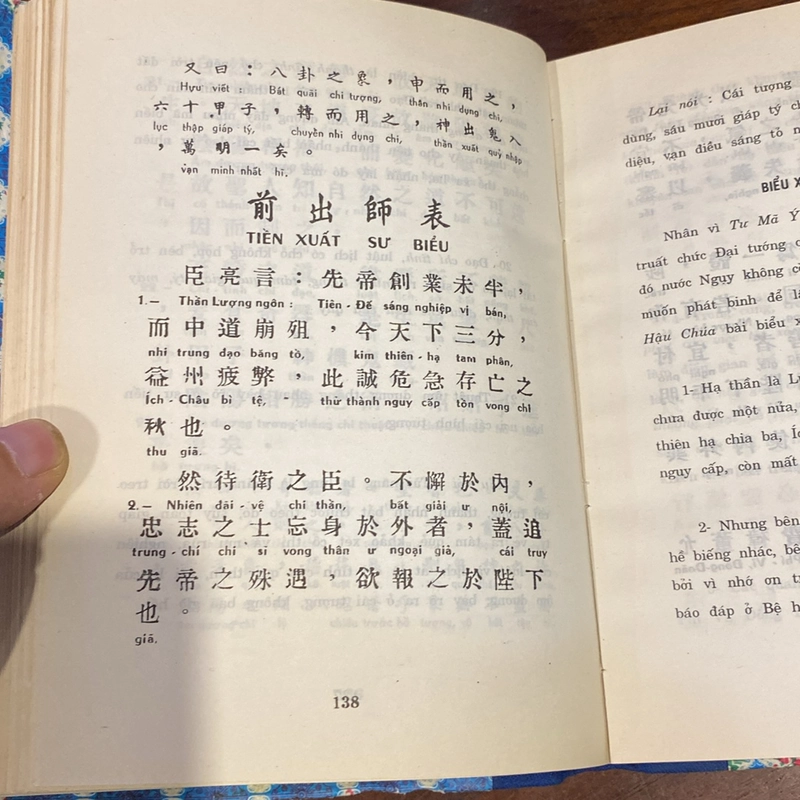 又曰：八卦之象，申而用之，
Hựu viết : Bát quái chi tượng, thân nhi dụng chi,
六十甲子，轉而用之，神出鬼入
lục thập giáp tý, chuyển nhi dụng chi, thần xuất quỷ nhập
，萬明一矣。
vạn minh nhất hĩ.
前出師表
TIỀN XUẤT SƯ BIỂU
臣亮言：先帝創業未半，
1.— Thần Lượng ngôn : Tiên-Đế sáng nghiệp vị bán,
而中道崩殂，今天下三分，
nhi trung dạo băng tò, kim thiên-hạ tam phân,
益州疲弊，此誠危急存亡之
Ích-Châu bì tệ, - thử thành nguy cấp tồn vong chi
秋也。
thu giã.
然待衛之臣。不懈於內，
2.— Nhiên dãi-vệ chi thần, bất giải ư nội,
忠志之士忘身於外者，蓋追
trung-chí chi sĩ vong thân ư ngoại giả, cái truy
先帝之殊遇，欲報之於陛下
也。
giã.
138
Lại nói : Cái tượng
dùng, sáu mươi giáp tý ch
diệu, vạn điều sáng tỏ n
BIỂU X
Nhân vì Tư Mã Ý
truất chức Đại tướng c
đó nước Ngụy không c
muốn phát binh để l
Hậu Chúa bài biểu x
1- Hạ thần là L
chưa được một nửa,
thiên hạ chia ba, Íc
nguy cấp, còn mất
2- Nhưng bên
hề biếng nhác, bê
bởi vì nhớ ơn t
báo đáp ở Bệ h